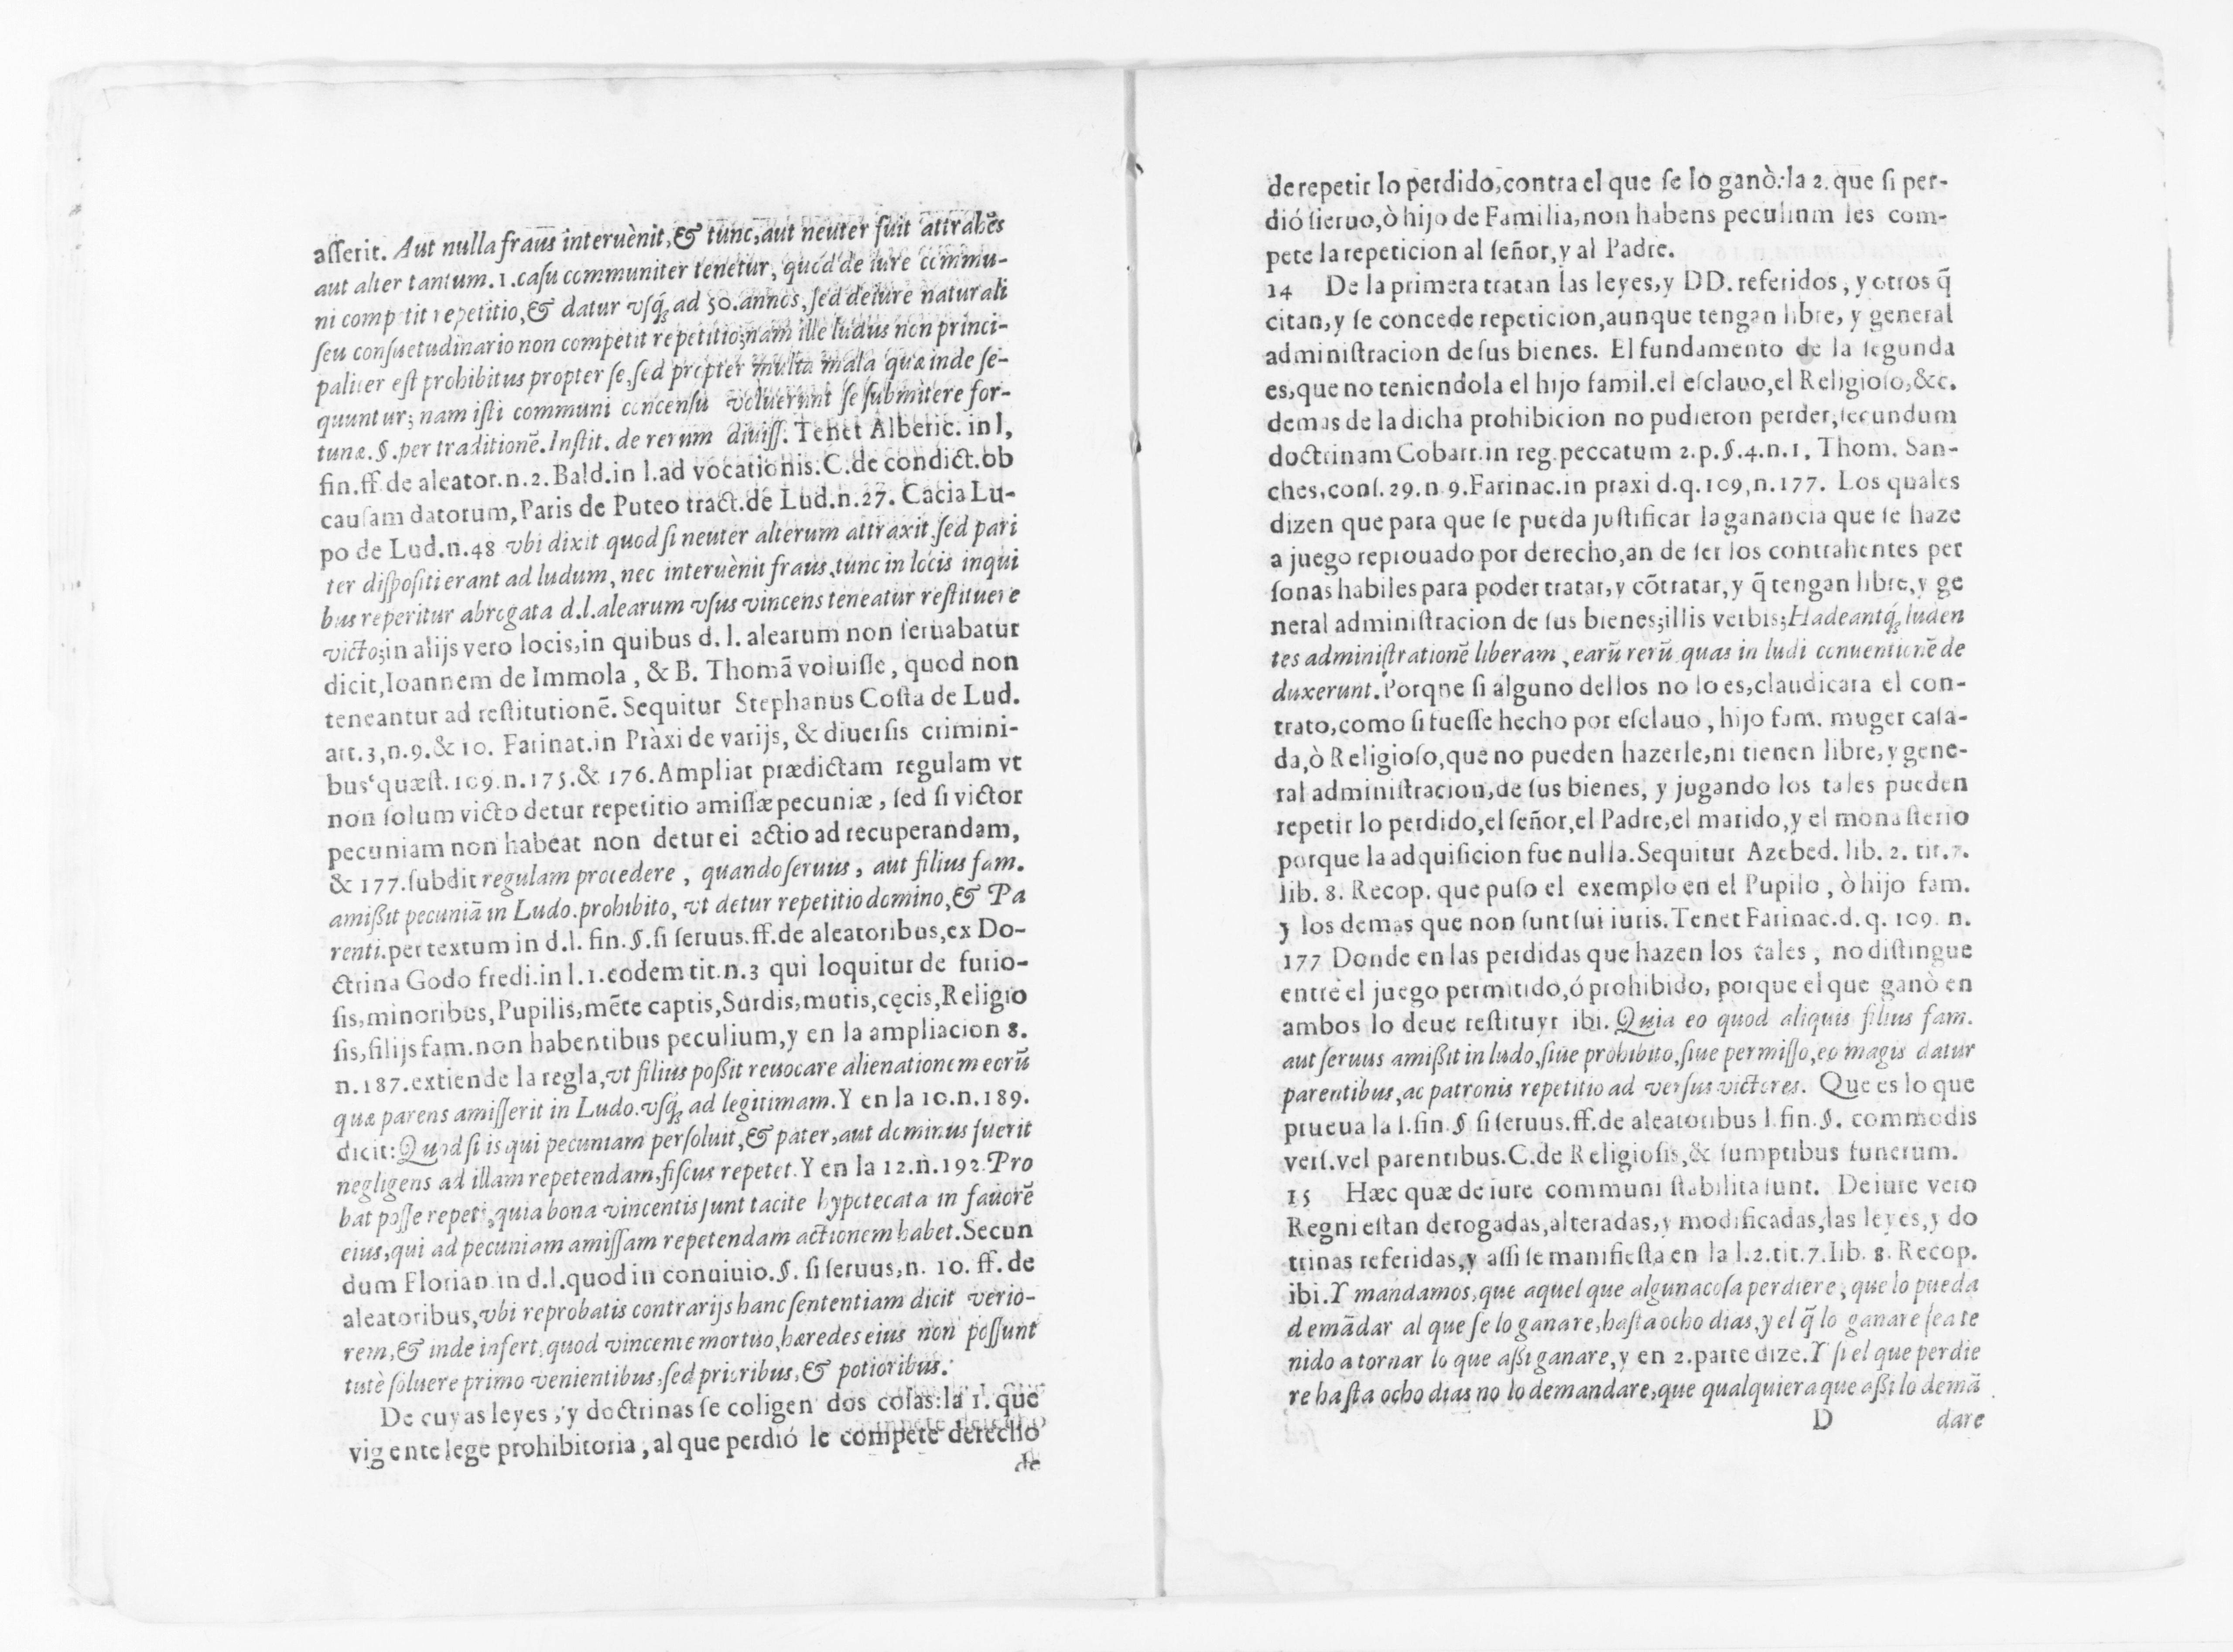 aſſerit. Aut nulla fraus interuènit, & tunc, aut neuter fuit attrahẽs
aut alter tantum. 1. caſu communiter tenetur, quod de iure commu-
ni competit repetitio, & datur vſq́; ad 50. annos, ſed de iure naturali
ſeu conſuetudinario non competit repetitio; nam ille ludus non princi-
paliter eſt prohibitus propter ſe, ſed propter multa mala quæ inde ſe-
quuntur; nam iſti communi concenſu voluerunt ſe ſubmitere for-
tunæ. §. per traditionẽ. Inſtit. de rerum diuiſſ. Tenet Alberic. in l,
fin. ff. de aleator. n. 2. Bald. in l. ad vocationis. C. de condict. ob
cauſam datorum, Paris de Puteo tract. de Lud. n. 27. Cacia Lu-
po de Lud. n. 48 vbi dixit quod ſi neuter alterum attraxit, ſed pari
ter diſpoſiti erant ad ludum, nec interuènit fraus, tunc in locis in qui
bus reperitur abrogata d. l. alearum vſus vincens teneatur reſtituere
victo; in alijs vero locis, in quibus d. l. alearum non ſeruabatur
dicit, Ioannem de Immola, & B. Thomã voluiſſe, quod non
teneantur ad reſtitutionẽ. Sequitur Stephanus Coſta de Lud.
art. 3, n. 9. & 10. Farinat. in Pràxi de varijs, & diuerſis crimini-
bus quæſt. 109. n. 175. & 176. Ampliat prædictam regulam vt
non ſolum victo detur repetitio amiſſæ pecuniæ, ſed ſi victor
pecuniam non habeat non detur ei actio ad recuperandam,
& 177. ſubdit regulam procedere, quando ſeruus, aut filius fam.
amiſsit pecuniã in Ludo. prohibito, vt detur repetitio domino, & Pa
renti. per textum in d. l. fin. §. ſi ſeruus. ff. de aleatoribus, ex Do-
ctrina Godo fredi. in l. 1. eodem tit. n. 3 qui loquitur de furio-
ſis, minoribus, Pupilis, mẽte captis, Surdis, mutis, cęcis, Religio
ſis, filijs fam. non habentibus peculium, y en la ampliacion 8.
n. 187. extiende la regla, vt filius poſsit reuocare alienationem eorũ
quæ parens amiſſerit in Ludo. vſq́; ad legitimam. Y en la 10. n. 189.
dicit: Quod ſi is qui pecuniam perſoluit, & pater, aut dominus fuerit
negligens ad illam repetendam, fiſcus repetet. Y en la 12. n. 192. Pro
bat poſſe repeti, quia bona vincentis ſunt tacite hypotecata in fauorẽ
eius, qui ad pecuniam amiſſam repetendam actionem habet. Secun
dum Florian in d. l. quod in conuiuio. §. ſi ſeruus, n. 10. ff. de
aleatoribus, vbi reprobatis contrarijs hanc ſententiam dicit verio-
rem, & inde infert, quod vincente mortuo, hæredes eius non poſſunt
tutè ſoluere primo venientibus, ſed prioribus, & potioribus.
De cuyas leyes, y doctrinas ſe coligen dos coſas: la 1. que
vigente lege prohibitoria, al que perdió le compete derecho
de
de repetir lo perdido, contra el que ſe lo ganò: la 2. que ſi per-
dió ſieruo, ò hijo de Familia, non habens peculium les com-
pete la repeticion al ſeñor, y al Padre.
14 De la primera tratan las leyes, y DD. referidos, y otros q̃
citan, y ſe concede repeticion, aunque tengan libre, y general
adminiſtracion de ſus bienes. El fundamento de la ſegunda
es, que no teniendola el hijo famil. el eſclauo, el Religioſo, &c.
demas de la dicha prohibicion no pudieron perder, ſecundum
doctrinam Cobarr. in reg. peccatum 2. p. §. 4. n. 1, Thom. San-
ches, conſ. 29. n 9. Farinac. in praxi d. q. 109, n. 177. Los quales
dizen que para que ſe pueda juſtificar la ganancia que ſe haze
a juego reprouado por derecho, an de ſer los contrahentes per
ſonas habiles para poder tratar, y cõtratar, y q̃ tengan libre, y ge
neral adminiſtracion de ſus bienes; illis verbis; Hadeantq́; luden
tes adminiſtrationẽ liberam, earũ rerũ quas in ludi conuentionẽ de
duxerunt. Porque ſi alguno dellos no lo es, claudicara el con-
trato, como ſi fueſſe hecho por eſclauo, hijo fam. muger caſa-
da, ò Religioſo, que no pueden hazerle, ni tienen libre, y gene-
ral adminiſtracion, de ſus bienes, y jugando los tales pueden
repetir lo perdido, el ſeñor, el Padre, el marido, y el monaſterio
porque la adquiſicion fue nulla. Sequitur Azebed. lib. 2. tit. 7.
lib. 8. Recop. que puſo el exemplo en el Pupilo, ò hijo fam.
y los demas que non ſunt ſui iuris. Tenet Farinac. d. q. 109. n.
177 Donde en las perdidas que hazen los tales, no diſtingue
entre el juego permitido, ó prohibido, porque el que ganò en
ambos lo deue reſtituyr ibi. Quia eo quod aliquis filius fam.
aut ſeruus amiſsit in ludo, ſiue prohibito, ſiue permiſſo, eo magis datur
parentibus, ac patronis repetitio ad verſus victores. Que es lo que
prueua la l. fin. § ſi ſeruus. ff. de aleatoribus l. fin. §. commodis
verſ. vel parentibus. C. de Religioſis, & ſumptibus funerum.
15 Hæc quæ de iure communi ſtabilita ſunt. De iure vero
Regni eſtan derogadas, alteradas, y modificadas, las leyes, y do
trinas referidas, y aſſi ſe manifieſta en la l. 2. tit. 7. lib. 8. Recop.
ibi. Y mandamos, que aquel que alguna coſa perdiere, que lo pueda
demãdar al que ſe lo ganare, haſta ocho dias, y el q̃ lo ganare ſea te
nido a tornar lo que aſsi ganare, y en 2. parte dize. Y ſi el que perdie
re haſta ocho dias no lo demandare, que qualquiera que aſsi lo demã
D dare